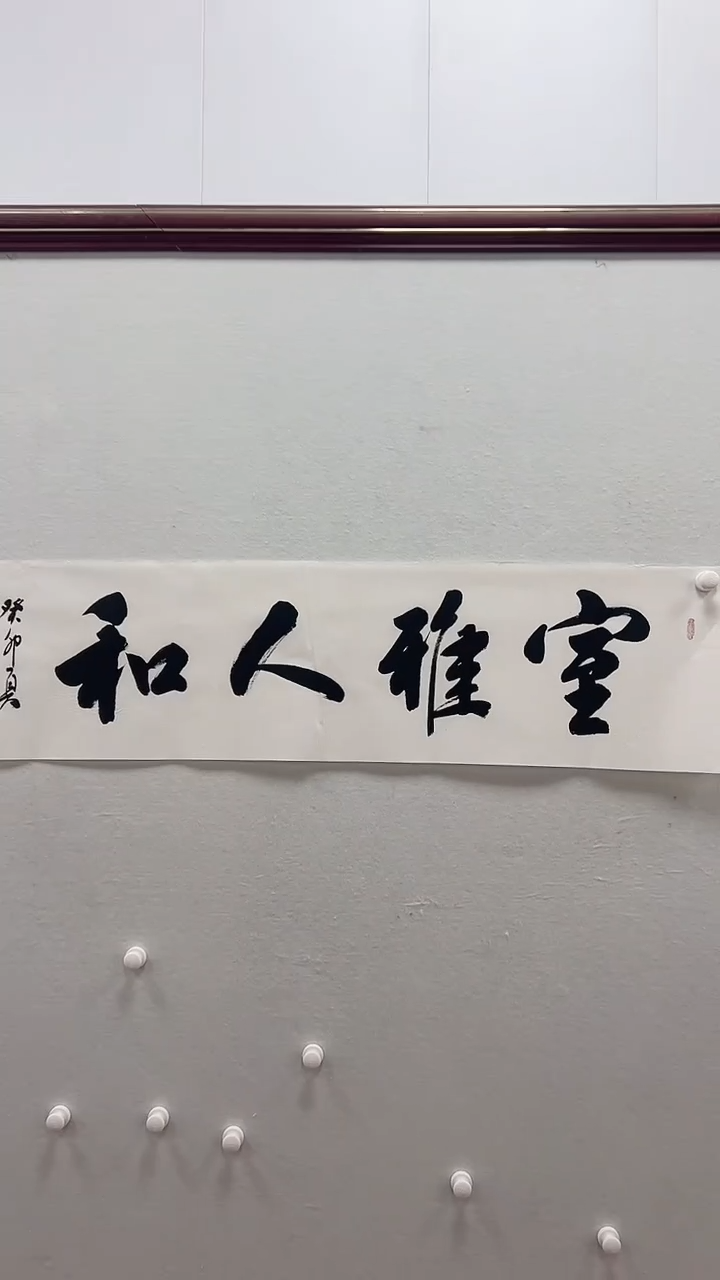 室雅人和
癸卯夏